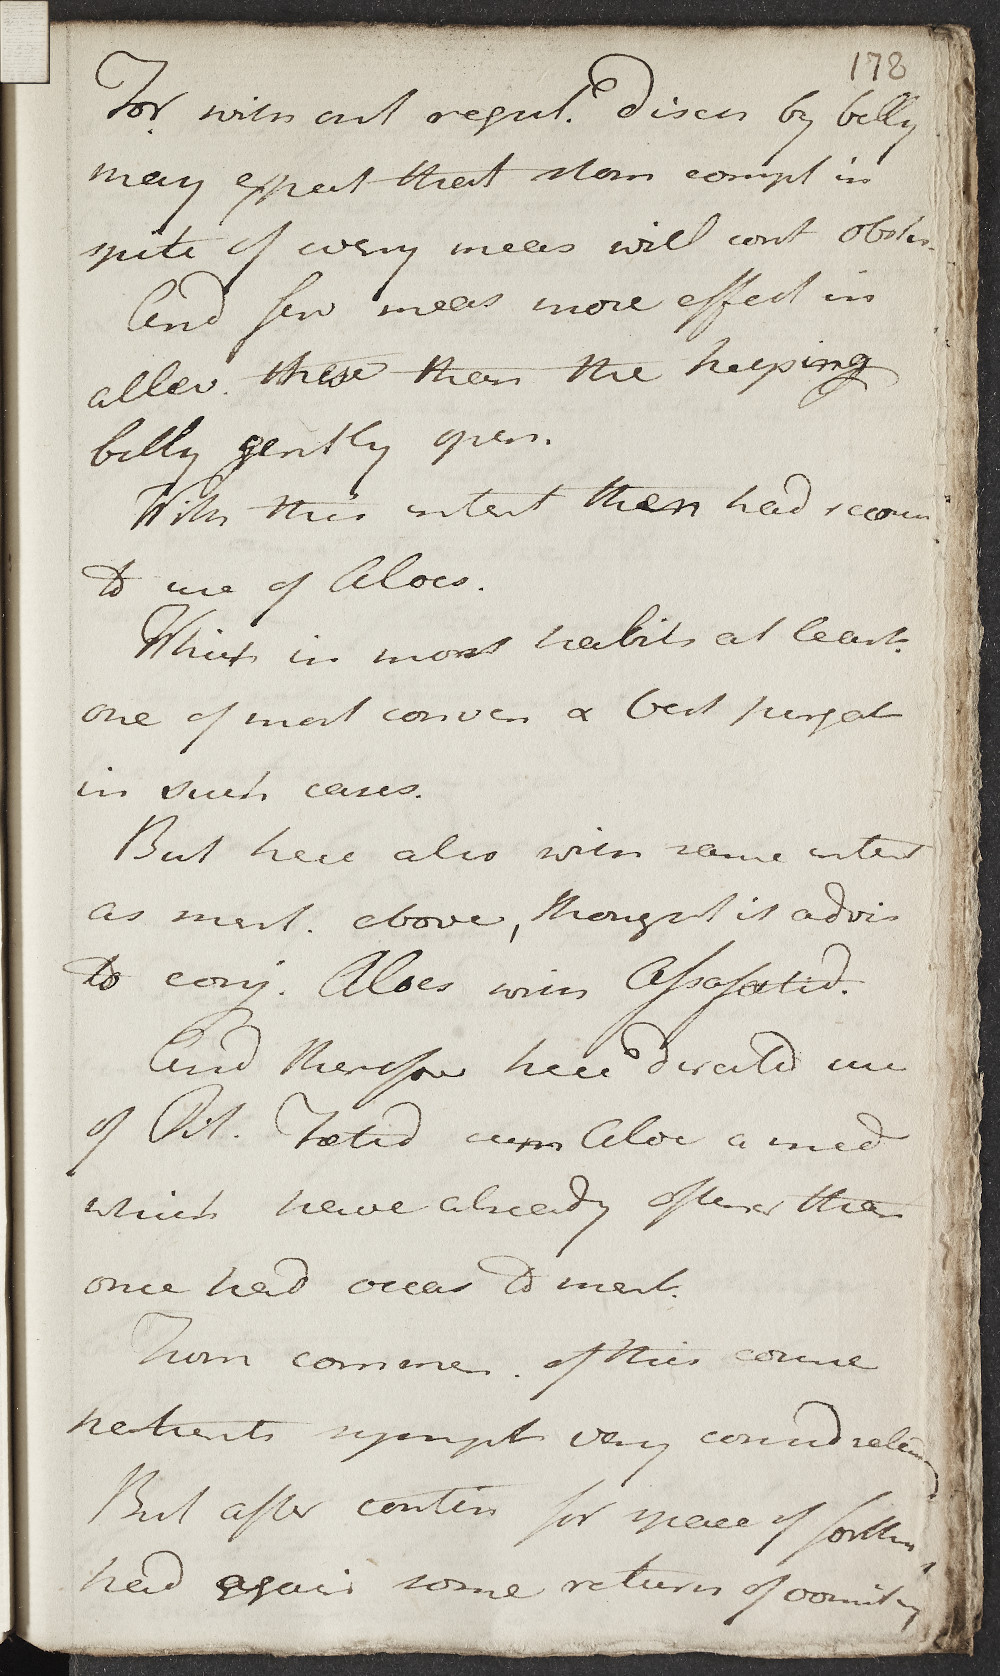 178
For without regul. disch by belly
may expect that stom compl in
spite of every meas will cont obstin
And few meas more effect in
allev. these than the keeping
belly gently open.
With this intent then had recour
to use of Aloes.
Which in most habits at least
one of most conven & best purgat
in such cases.
But here also with same intent
as ment. above, thought it advis
to conj. Aloes with Assafœtid.
And therefore here directed use
of Pil. Fœtid cum Aloe a med
which have already oftener than
once had occas to ment.
From commen. of this course
patients sympt very considr reliev
But after contin for space of forthn
had again some return of vomiting